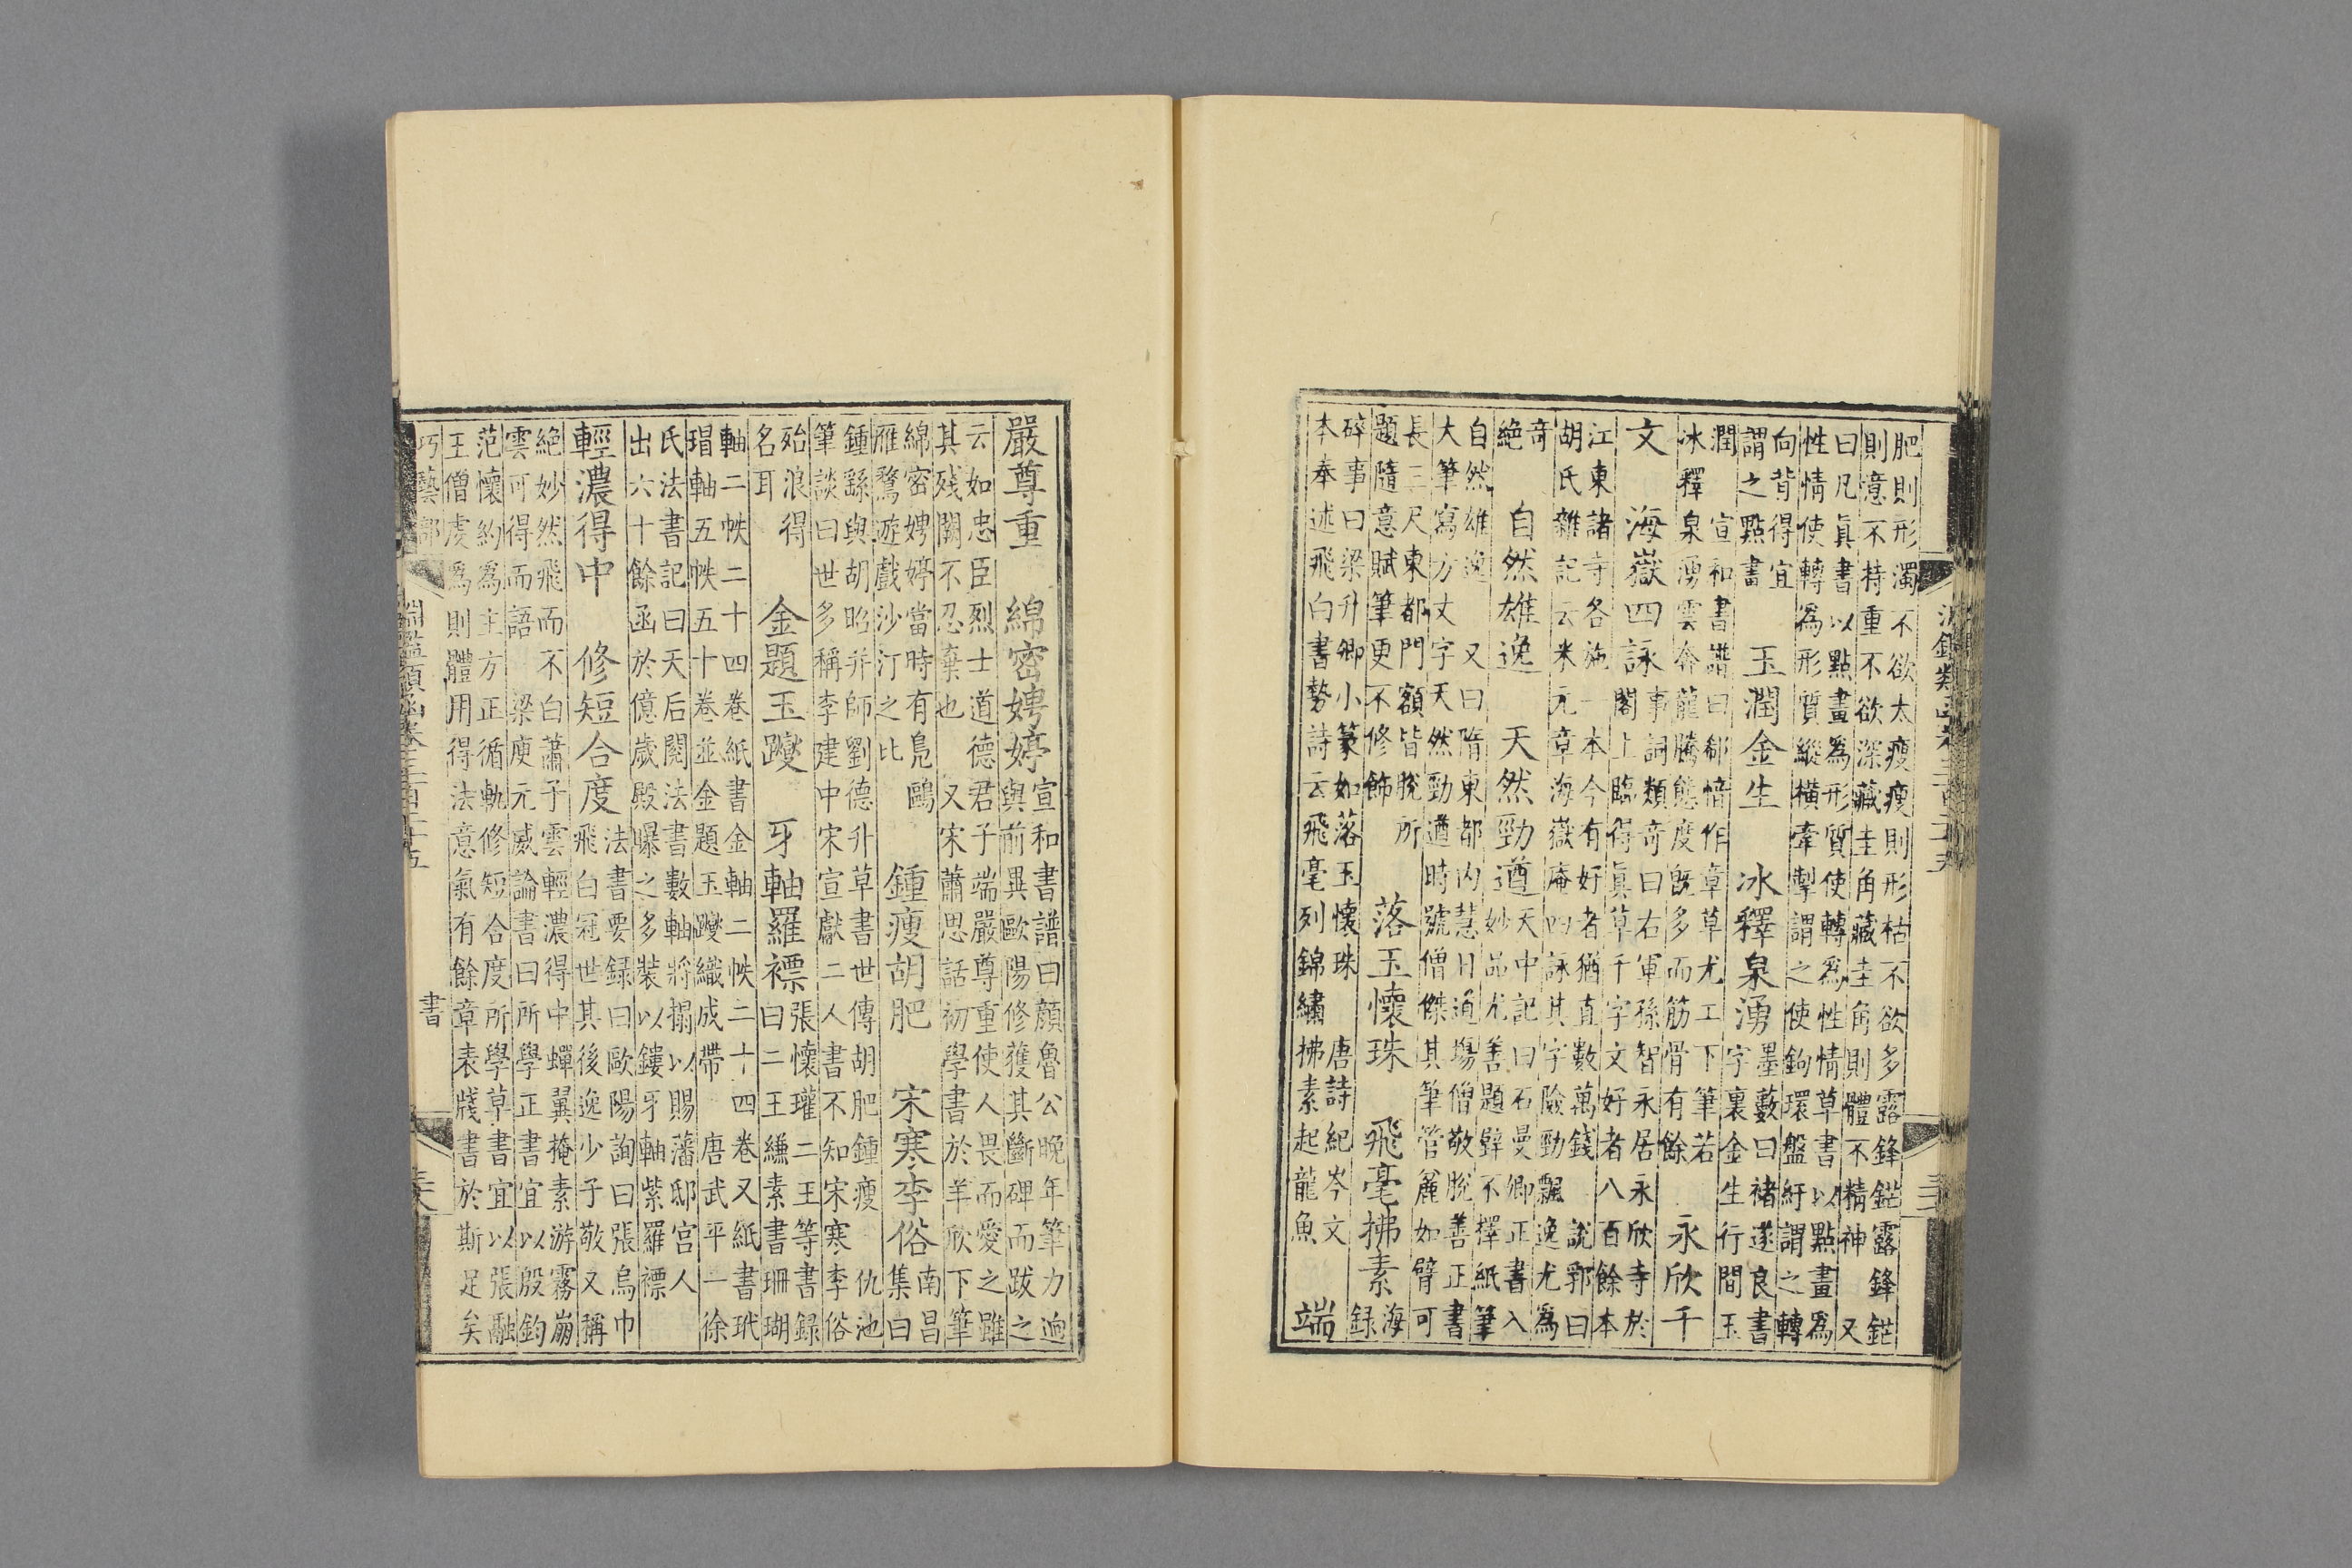 肥則形濁不欲太瘦瘦則形枯不欲多露鋒鋩露鋒鋩
則意不持重不欲深藏圭角藏圭角則體不精神　又
曰凡眞書以點畫爲形質使轉爲性情草書以點畫爲
性情使轉爲形質縱橫牽掣謂之使鉤環盤紆謂之轉
向背得宜
謂之點書
玉潤金生　冰釋泉湧
墨藪曰褚遂良書
字裏金生行間玉
潤　宣和書譜曰郗愔作章草尤工下筆若
冰釋泉湧雲奔龍騰態度旣多而筋骨有餘
永欣千
文　海嶽四詠
事詞類奇曰右軍孫智永居永欣寺於
閣上臨得眞草千字文好者八百餘本
江東諸寺各施一本今有好者猶直數萬錢　說郛曰
胡氏雜記云米元章海嶽庵四詠其字險勁飄逸尤爲
奇
絕
自然雄逸　天然勁遒
天中記曰石曼卿正書入
妙品尤善題壁不擇紙筆
自然雄逸　又曰隋東都內慧日道塲僧敬脫善正書
大筆寫方丈字天然勁遒時號僧傑其筆管麄如臂可
長三尺東都門額皆脫所
題隨意賦筆更不修飾
落玉懷珠　飛毫拂素
海
錄
碎事曰梁升卿小篆如落玉懷珠　唐詩紀岑文
本奉述飛白書勢詩云飛毫列錦繡拂素起龍魚
端
嚴尊重　綿密娉婷
宣和書譜曰顏魯公晚年筆力逈
與前異歐陽修獲其斷碑而跋之
云如忠臣烈士道德君子端嚴尊重使人畏而愛之雖
其殘闕不忍棄也　又宋蕭思話初學書於羊欣下筆
綿密娉婷當時有鳧鷗
雁鶩遊戲沙汀之比
鍾瘦胡肥　宋寒李俗
南昌
集曰
鍾繇與胡昭并師劉德升草書世傳胡肥鍾瘦　仇池
筆談曰世多稱李建中宋宣獻二人書不知宋寒李俗
殆浪得
名耳
金題玉躞　牙軸羅褾
張懷瓘二王等書錄
曰二王縑素書珊瑚
軸二帙二十四卷紙書金軸二帙二十四卷又紙書玳
瑁軸五帙五十卷並金題玉躞織成帶　唐武平一徐
氏法書記曰天后閱法書數軸將搨以賜藩邸宮人
出六十餘函於億歲殿曝之多裝以鏤牙軸紫羅褾
輕濃得中　修短合度
法書要錄曰歐陽詢曰張烏巾
飛白冠世其後逸少子敬又稱
絕妙然飛而不白蕭子雲輕濃得中蟬翼掩素游霧崩
雲可得而語　梁庾元威論書曰所學正書宜以殷鈞
范懷約爲主方正循軌修短合度所學草書宜以張融
王僧虔爲則體用得法意氣有餘章表牋書於斯足矣
巧藝部
書